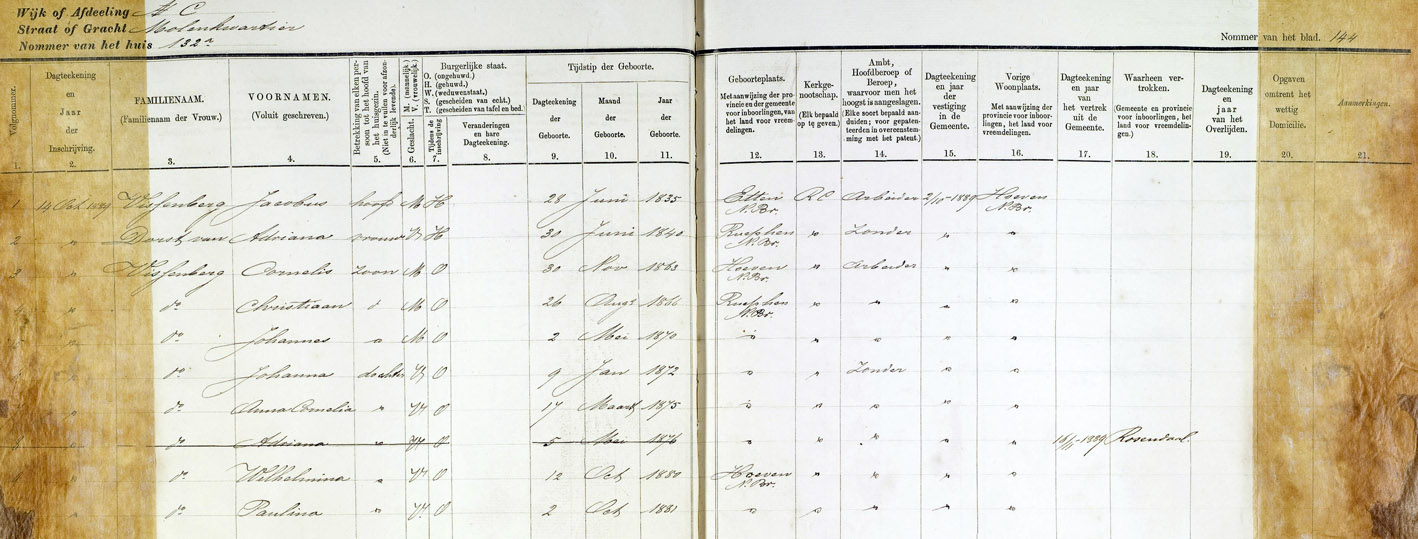 Wijk of Afdeeling A C
Straat of Gracht Molenkwartier
Nommer van het huis 132a
Nommer van het blad. 144
Volgnommer. 1.
Dagteekening en Jaar der Inschrijving. 2.
FAMILIENAAM. (Familienaam der Vrouw.) 3.
VOORNAMEN. (Voluit geschreven.) 4.
Betrekking van elken persoon tot het hoofd van het huisgezin. (Niet in te vullen voor afzonderlijk levende). 5.
Geslacht. M. (mannelijk.) V. (vrouwelijk.) 6.
Burgerlijke staat.
O. (ongehuwd.)
H. (gehuwd.)
W. (weduwenstaat.)
S. (gescheiden van echt.)
T. (gescheiden van tafel en bed.)
Tijdens de inschrijving 7.
Veranderingen en hare Dagteekening. 8.
Tijdstip der Geboorte.
Dagteekening der Geboorte. 9.
Maand der Geboorte. 10.
Jaar der Geboorte. 11.
Geboorteplaats. Met aanwijzing der provincie en der gemeente voor inboorlingen, van het land voor vreemdelingen. 12.
Kerkgenootschap. (Elk bepaald op te geven.) 13.
Ambt, Hoofdberoep of Beroep, waarvoor men het hoogst is aangeslagen. (Elke soort bepaald aanduiden; voor gepatenteerden in overeenstemming met het patent.) 14.
Dagteekening en jaar der vestiging in de Gemeente. 15.
Vorige Woonplaats. Met aanwijzing der provincie voor inboorlingen, het land voor vreemdelingen. 16.
Dagteekening en jaar van het vertrek uit de Gemeente. 17.
Waarheen vertrokken. (Gemeente en provincie voor inboorlingen, het land voor vreemdelingen.) 18.
Dagteekening en jaar van het Overlijden. 19.
Opgaven omtrent het wettig Domicilie. 20.
Aanmerkingen. 21.
1 14 Oct 1889 Wissenberg Jacobus hoofd M H 28 Juni 1835 Etten N.Br. RC Arbeider 2/10-1889 Hoeven N.Br.
2 " Dorst van Adriana vrouw V H 30 Juni 1840 Rucphen N.Br. " Zonder " "
3 " Wissenberg Cornelis zoon M O 30 Nov 1863 Hoeven N.Br. " Arbeider " "
4 " do Christiaan d M O 26 Augt 1866 Rucphen N.Br. " " " "
" do Johannes " M O 2 Mei 1870 " " " " "
" do Johanna dochter V O 9 Jan 1872 " " Zonder " "
" do Anna Cornelia " V O 17 Maart 1875 " " " " "
" do Adriana " V O 5 Mei 1876 " " " " " Rosendaal
" do Wilhelmina " V O 12 Oct 1880 Hoeven N.Br. " " " "
" do Paulina " V O 2 Oct 1881 " " " " "